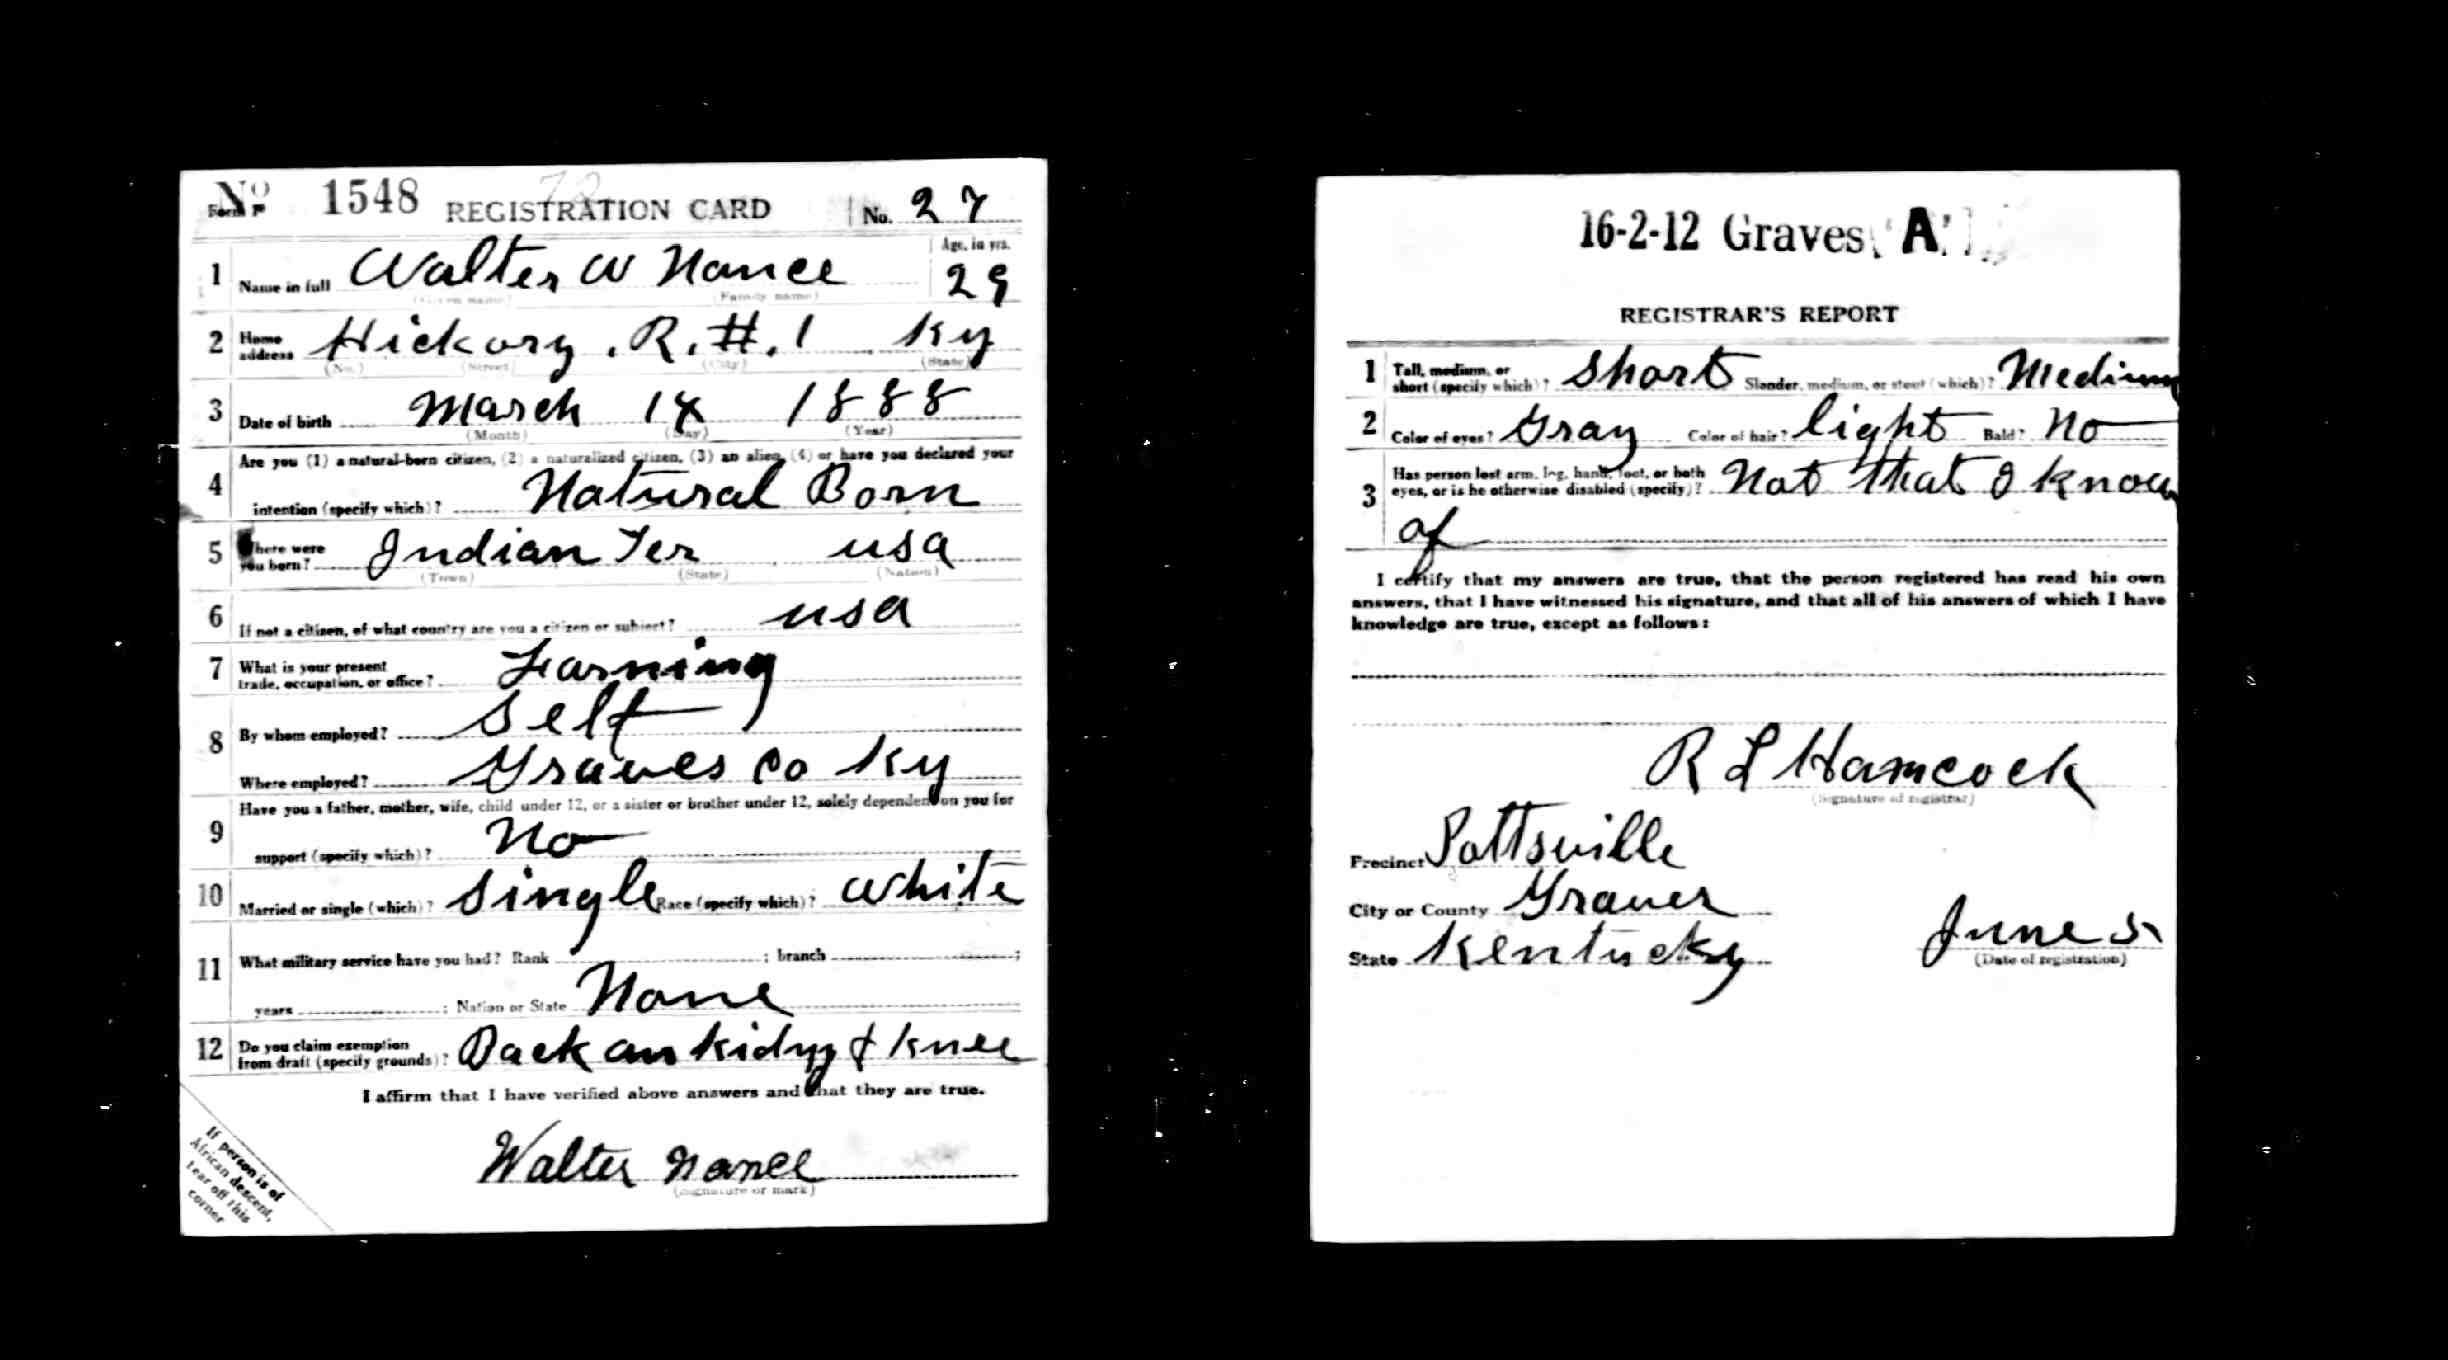 Form 1 No 1548 REGISTRATION CARD No. 27
1 Name in full Walter W Nance Age, in yrs. 29
(Given name) (Family name)
2 Home address Hickory. R. #. 1 Ky
(No.) (Street) (City) (State)
3 Date of birth March 14 1888
(Month) (Day) (Year)
4 Are you (1) a natural-born citizen, (2) a naturalized citizen, (3) an alien, (4) or have you declared your
intention (specify which)? Natural Born
5 Where were you born? Indian Ter usa
(Town) (State) (Nation)
6 If not a citizen, of what country are you a citizen or subject? usa
7 What is your present trade, occupation, or office? Farming
8 By whom employed? Self
Where employed? Graves Co Ky
9 Have you a father, mother, wife, child under 12, or a sister or brother under 12, solely dependent on you for
support (specify which)? No
10 Married or single (which)? Single Race (specify which)? White
11 What military service have you had? Rank ; branch ;
years ; Nation or State None
12 Do you claim exemption from draft (specify grounds)? Back kidny & Knee
I affirm that I have verified above answers and that they are true.
Walter Nance
(Signature or mark)
If person is of
African descent,
tear off this
corner
16-2-12 Graves A
REGISTRAR'S REPORT
1 Tall, medium, or short (specify which)? Short Slender, medium, or stout (which)? Medium
2 Color of eyes? Gray Color of hair? light Bald? No
3 Has person lost arm, leg, hand, foot, or both eyes, or is he otherwise disabled (specify)? Not that I know
of
I certify that my answers are true, that the person registered has read his own
answers, that I have witnessed his signature, and that all of his answers of which I have
knowledge are true, except as follows:
R L Hamcock
(Signature of registrar)
Precinct Pottsville
City or County Graves
State Kentucky June 5
(Date of registration)